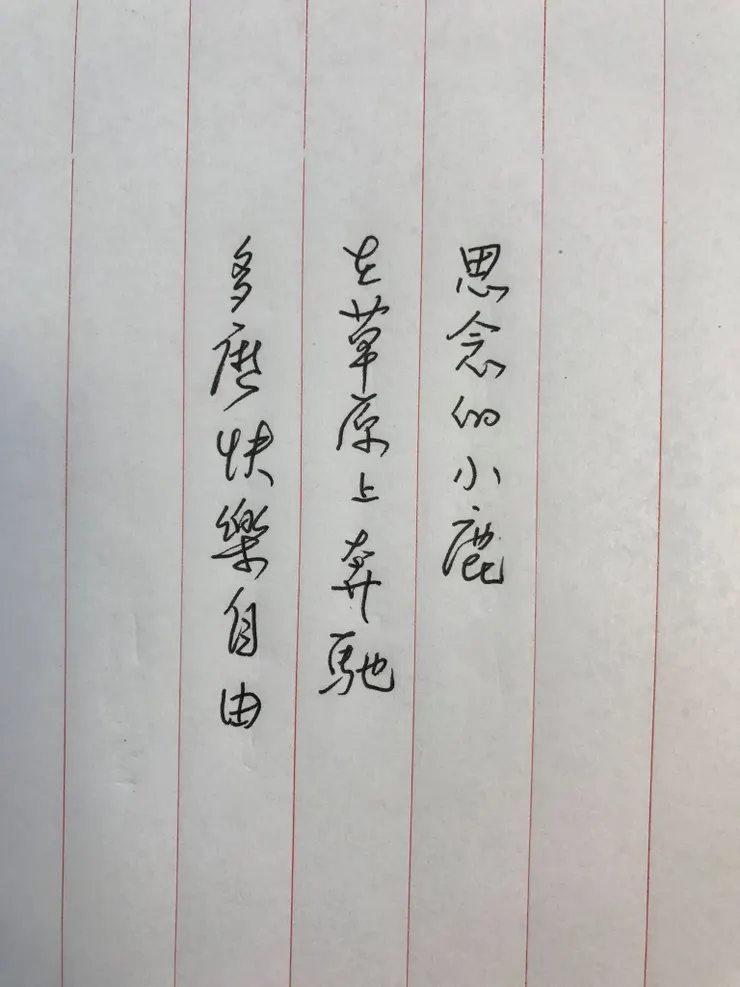 思念的小鹿
在草原上奔馳
多麽快樂自由